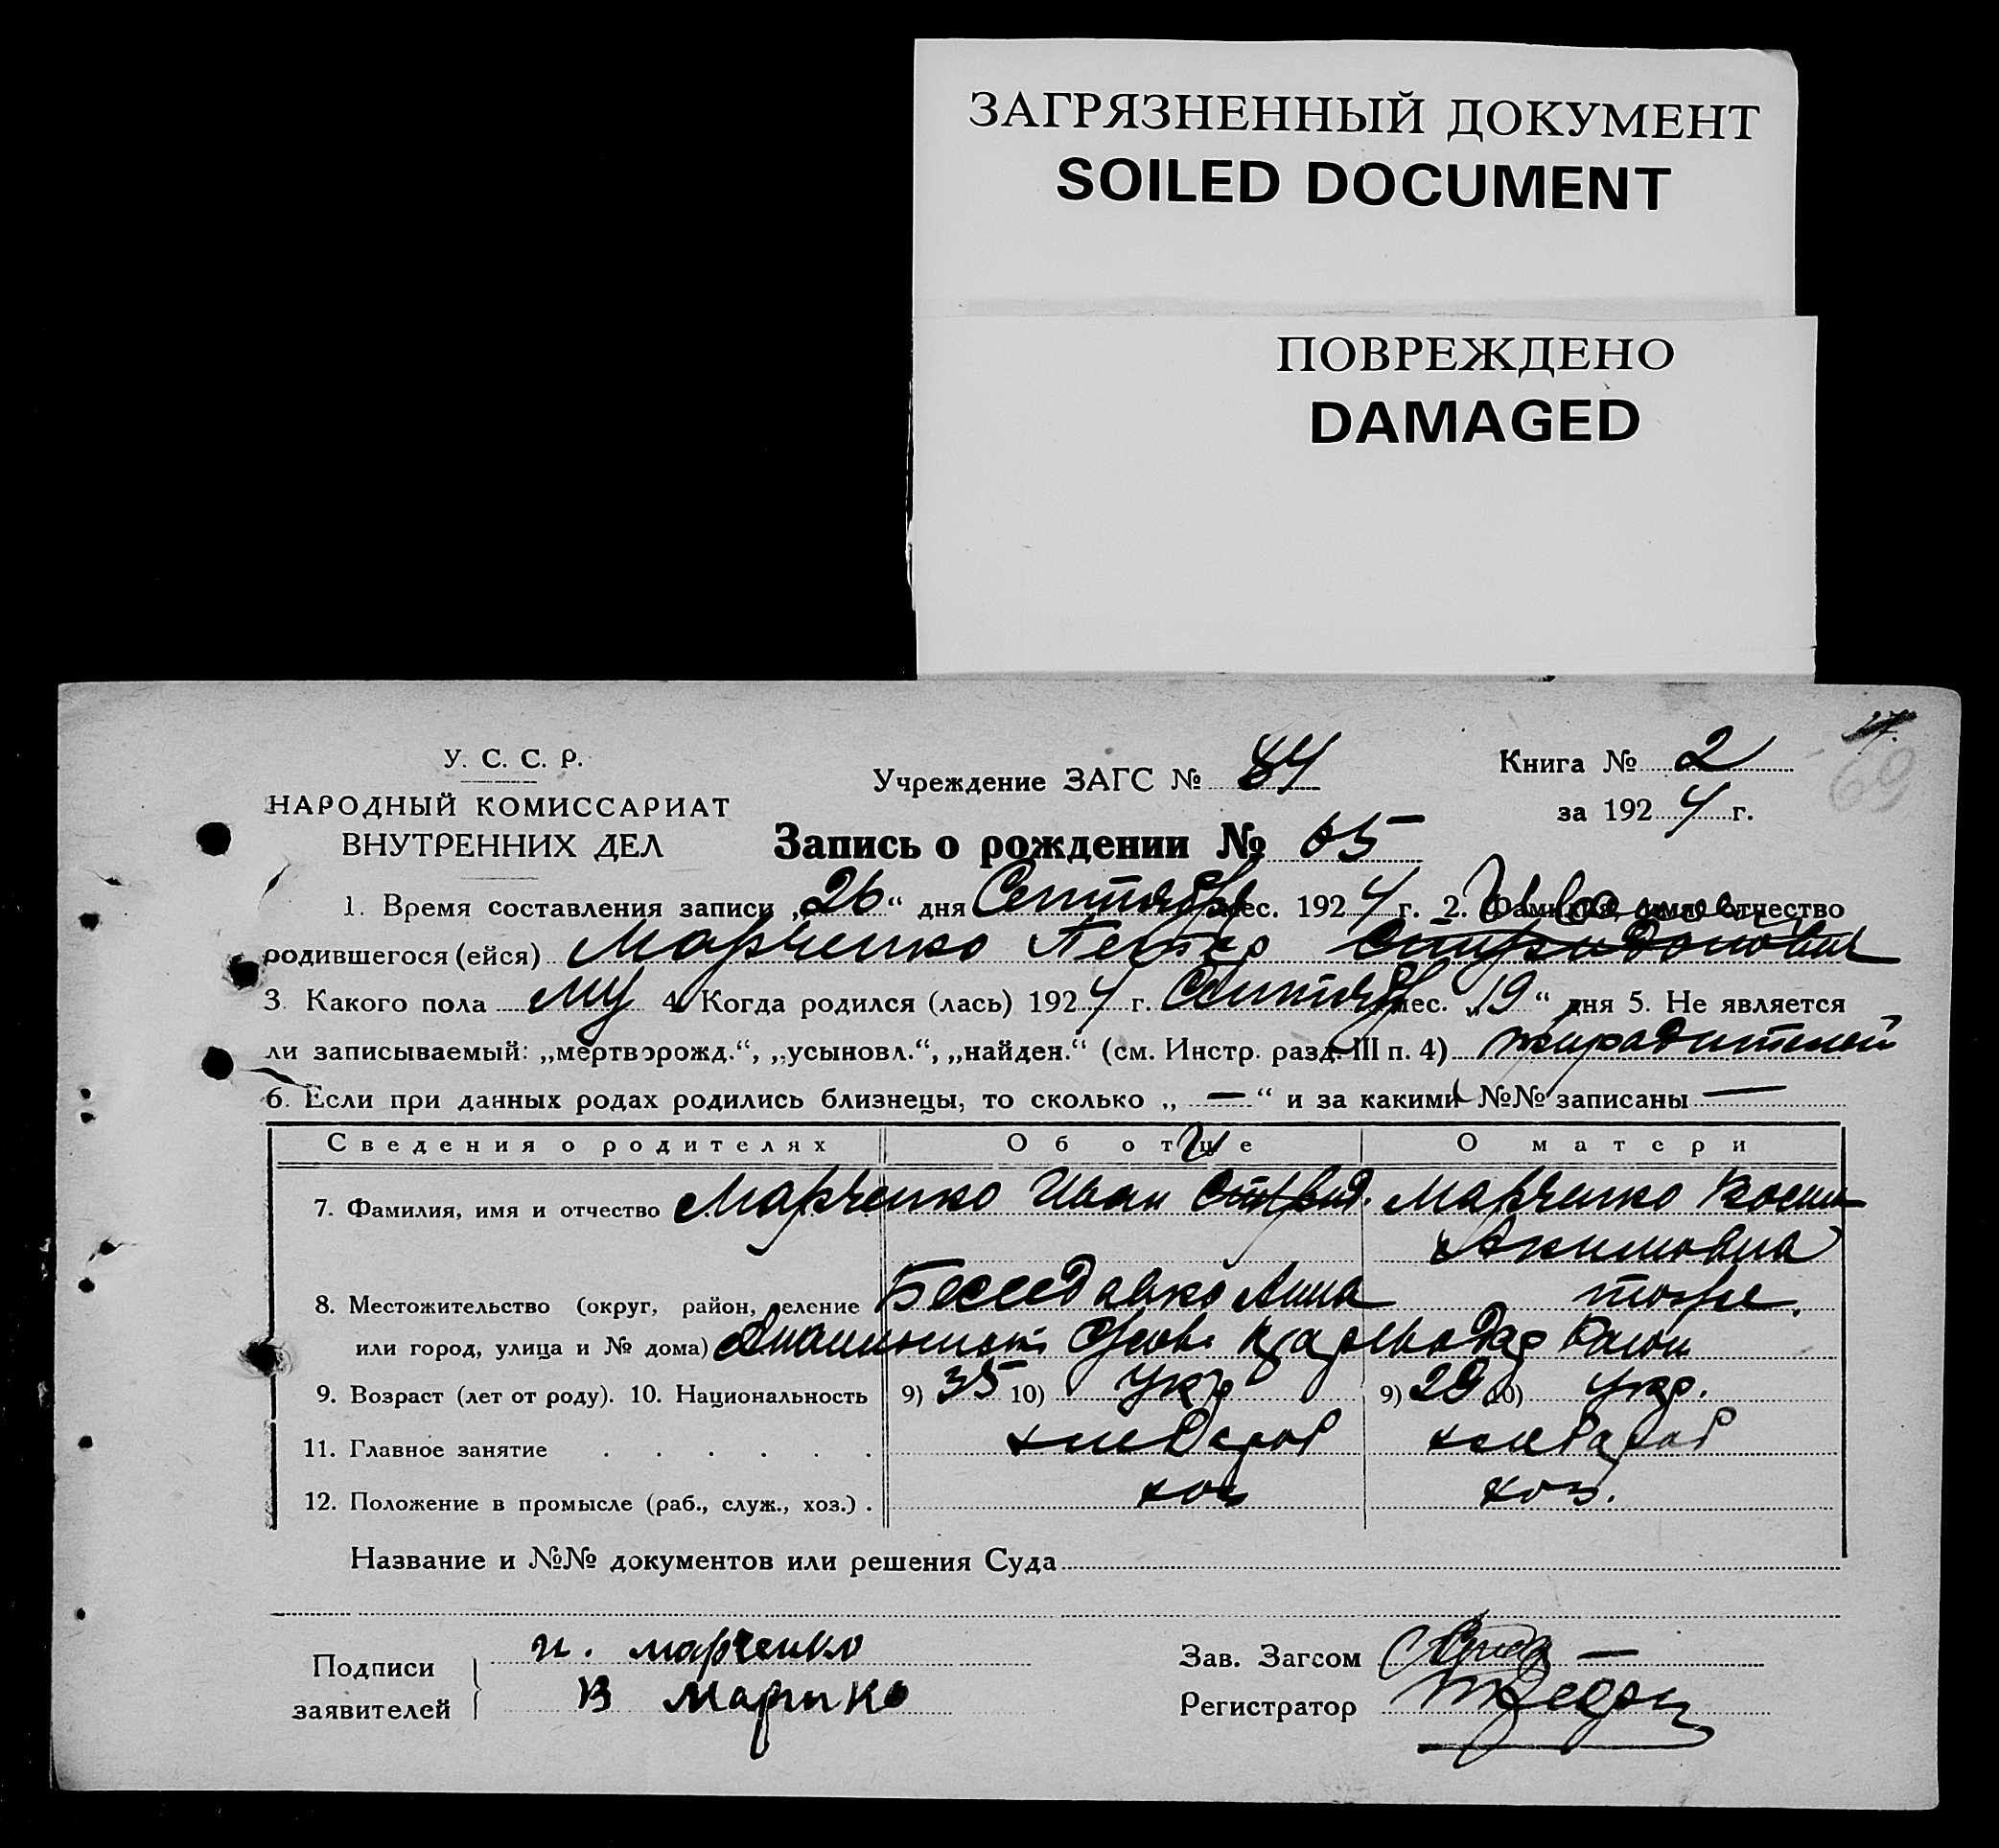 ЗАГРЯЗНЕННЫЙ ДОКУМЕНТ
SOILED DOCUMENT
ПОВРЕЖДЕНО
DAMAGED
У. С. С. Р.
НАРОДНЫЙ КОМИССАРИАТ
ВНУТРЕННИХ ДЕЛ
Учреждение ЗАГС № 84
Книга № 2
69
за 1924 г.
Запись о рождении № 65
1. Время составления записи „26“ дня Сентября мес. 1924 г. 2. Фамилия, имя и отчество
Иванович
родившегося (ейся) Марченко Петро Спиридонович
3. Какого пола му 4. Когда родился (лась) 1924 г. Сентяб мес. „19“ дня 5. Не является
ли записываемый: „мертворожд.“, „усыновл.“, „найден.“ (см. Инстр. разд. III п. 4)
6. Если при данных родах родились близнецы, то сколько „ — “ и за какими №№ записаны —
Сведения о родителях Об отце О матери
7. Фамилия, имя и отчество Марченко Иван Марченко
Акимовна
8. Местожительство (округ, район, селение тоже.
или город, улица и № дома)
9. Возраст (лет от роду). 10. Национальность 9) 35 10) Укр 9) 29 10) Укр.
11. Главное занятие . . . . . . хлебороб хлебороб
12. Положение в промысле (раб., служ., хоз.) . хоз хоз.
Название и №№ документов или решения Суда
Подписи
заявителей
и. марченко
В Марченко
Зав. Загсом
Регистратор